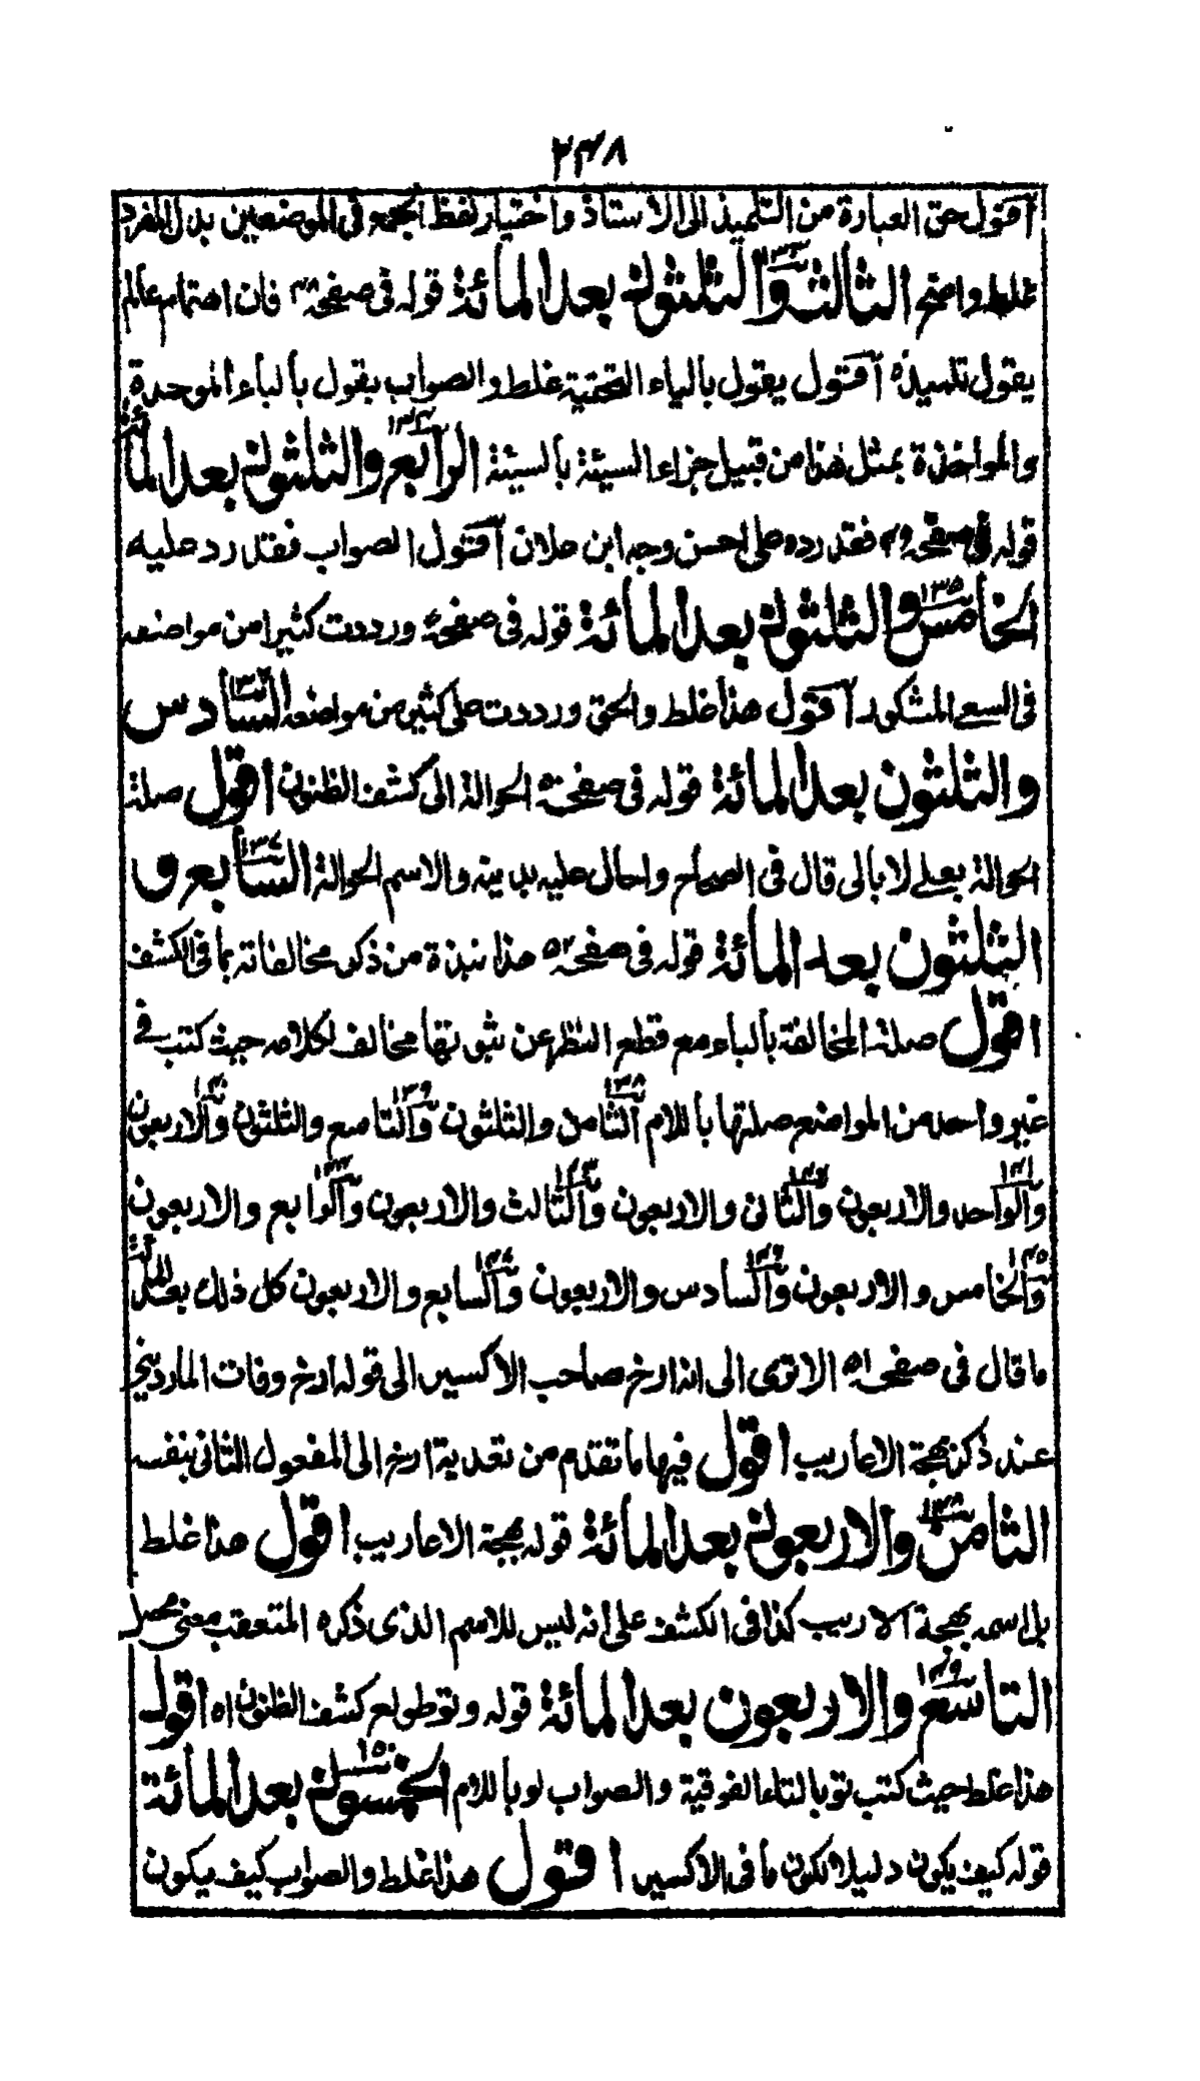 ٢٣٨
اقول حق العبارة من التلميذ الى الاستاذ واختيار لفظ الجمع في الموضعين بدل المفرد
غلط واضح الثالث والثلثون بعد المائة قوله في صفحه ٣٨ فان اهتمام عالم
يقول تلميذه اقول يقول بالياء التحتية غلط والصواب بقول بالباء الموحدة
والمواخذة بمثل هذا من قبيل جزاء السيئة بالسيئة الرابع والثلثون بعد المائة
قوله في صفحه فقد رده على احسن وجه ابن علان اقول الصواب فقد رد عليه
الخامس والثلثون بعد المائة قوله في صفحه ورددت كثيرا من مواضعه
في السعي المشكور اقول هذا غلط والحق ورددت على كثير من مواضعه السادس
والثلثون بعد المائة قوله في صفحه الحوالة الى كشف الظنون اقول صلة
الحوالة بعلى لا بالى قال في الصراح واحال عليه بدينه والاسم الحوالة السابع و
الثلثون بعد المائة قوله في صفحه ٥٢ هذا نبذة من ذكر مخالفاته بما في الكشف
اقول صلة المخالفة بالباء مع قطع النظر عن ثبوتها مخالف لكلامه حيث كتب في
غير واحد من المواضع صلتها باللام ١٣٨ الثامن والثلثون ١٣٩ والتاسع والثلثون ١٤٠ والاربعون
١٤١ والواحد والاربعون ١٤٢ والثاني والاربعون ١٤٣ والثالث والاربعون ١٤٤ والرابع والاربعون
١٤٥ والخامس والاربعون ١٤٦ والسادس والاربعون ١٤٧ والسابع والاربعون كل ذلك بعد المائة
ما قال في صفحه ٥١ الا ترى الى انه ارخ صاحب الاكسير الى قوله ارخ وفات المارديني
عند ذكر بهجة الاعاريب اقول فيها ما تقدم من تعدية ارخ الى المفعول الثاني بنفسه
الثامن والاربعون بعد المائة قوله بهجة الاعاريب اقول هذا غلط
بل اسمه بهجة الاريب كذا في الكشف على انه ليس للاسم الذي ذكره المتعقب معنى محصل
التاسع والاربعون بعد المائة قوله وتو طولع كشف الظنون اه اقول
هذا غلط حيث كتب تو بالتاء الفوقية والصواب لو باللام الخمسون بعد المائة
قوله كيف يكون دليلا لكون ما في الاكسير اقول هذا غلط والصواب كيف يكون